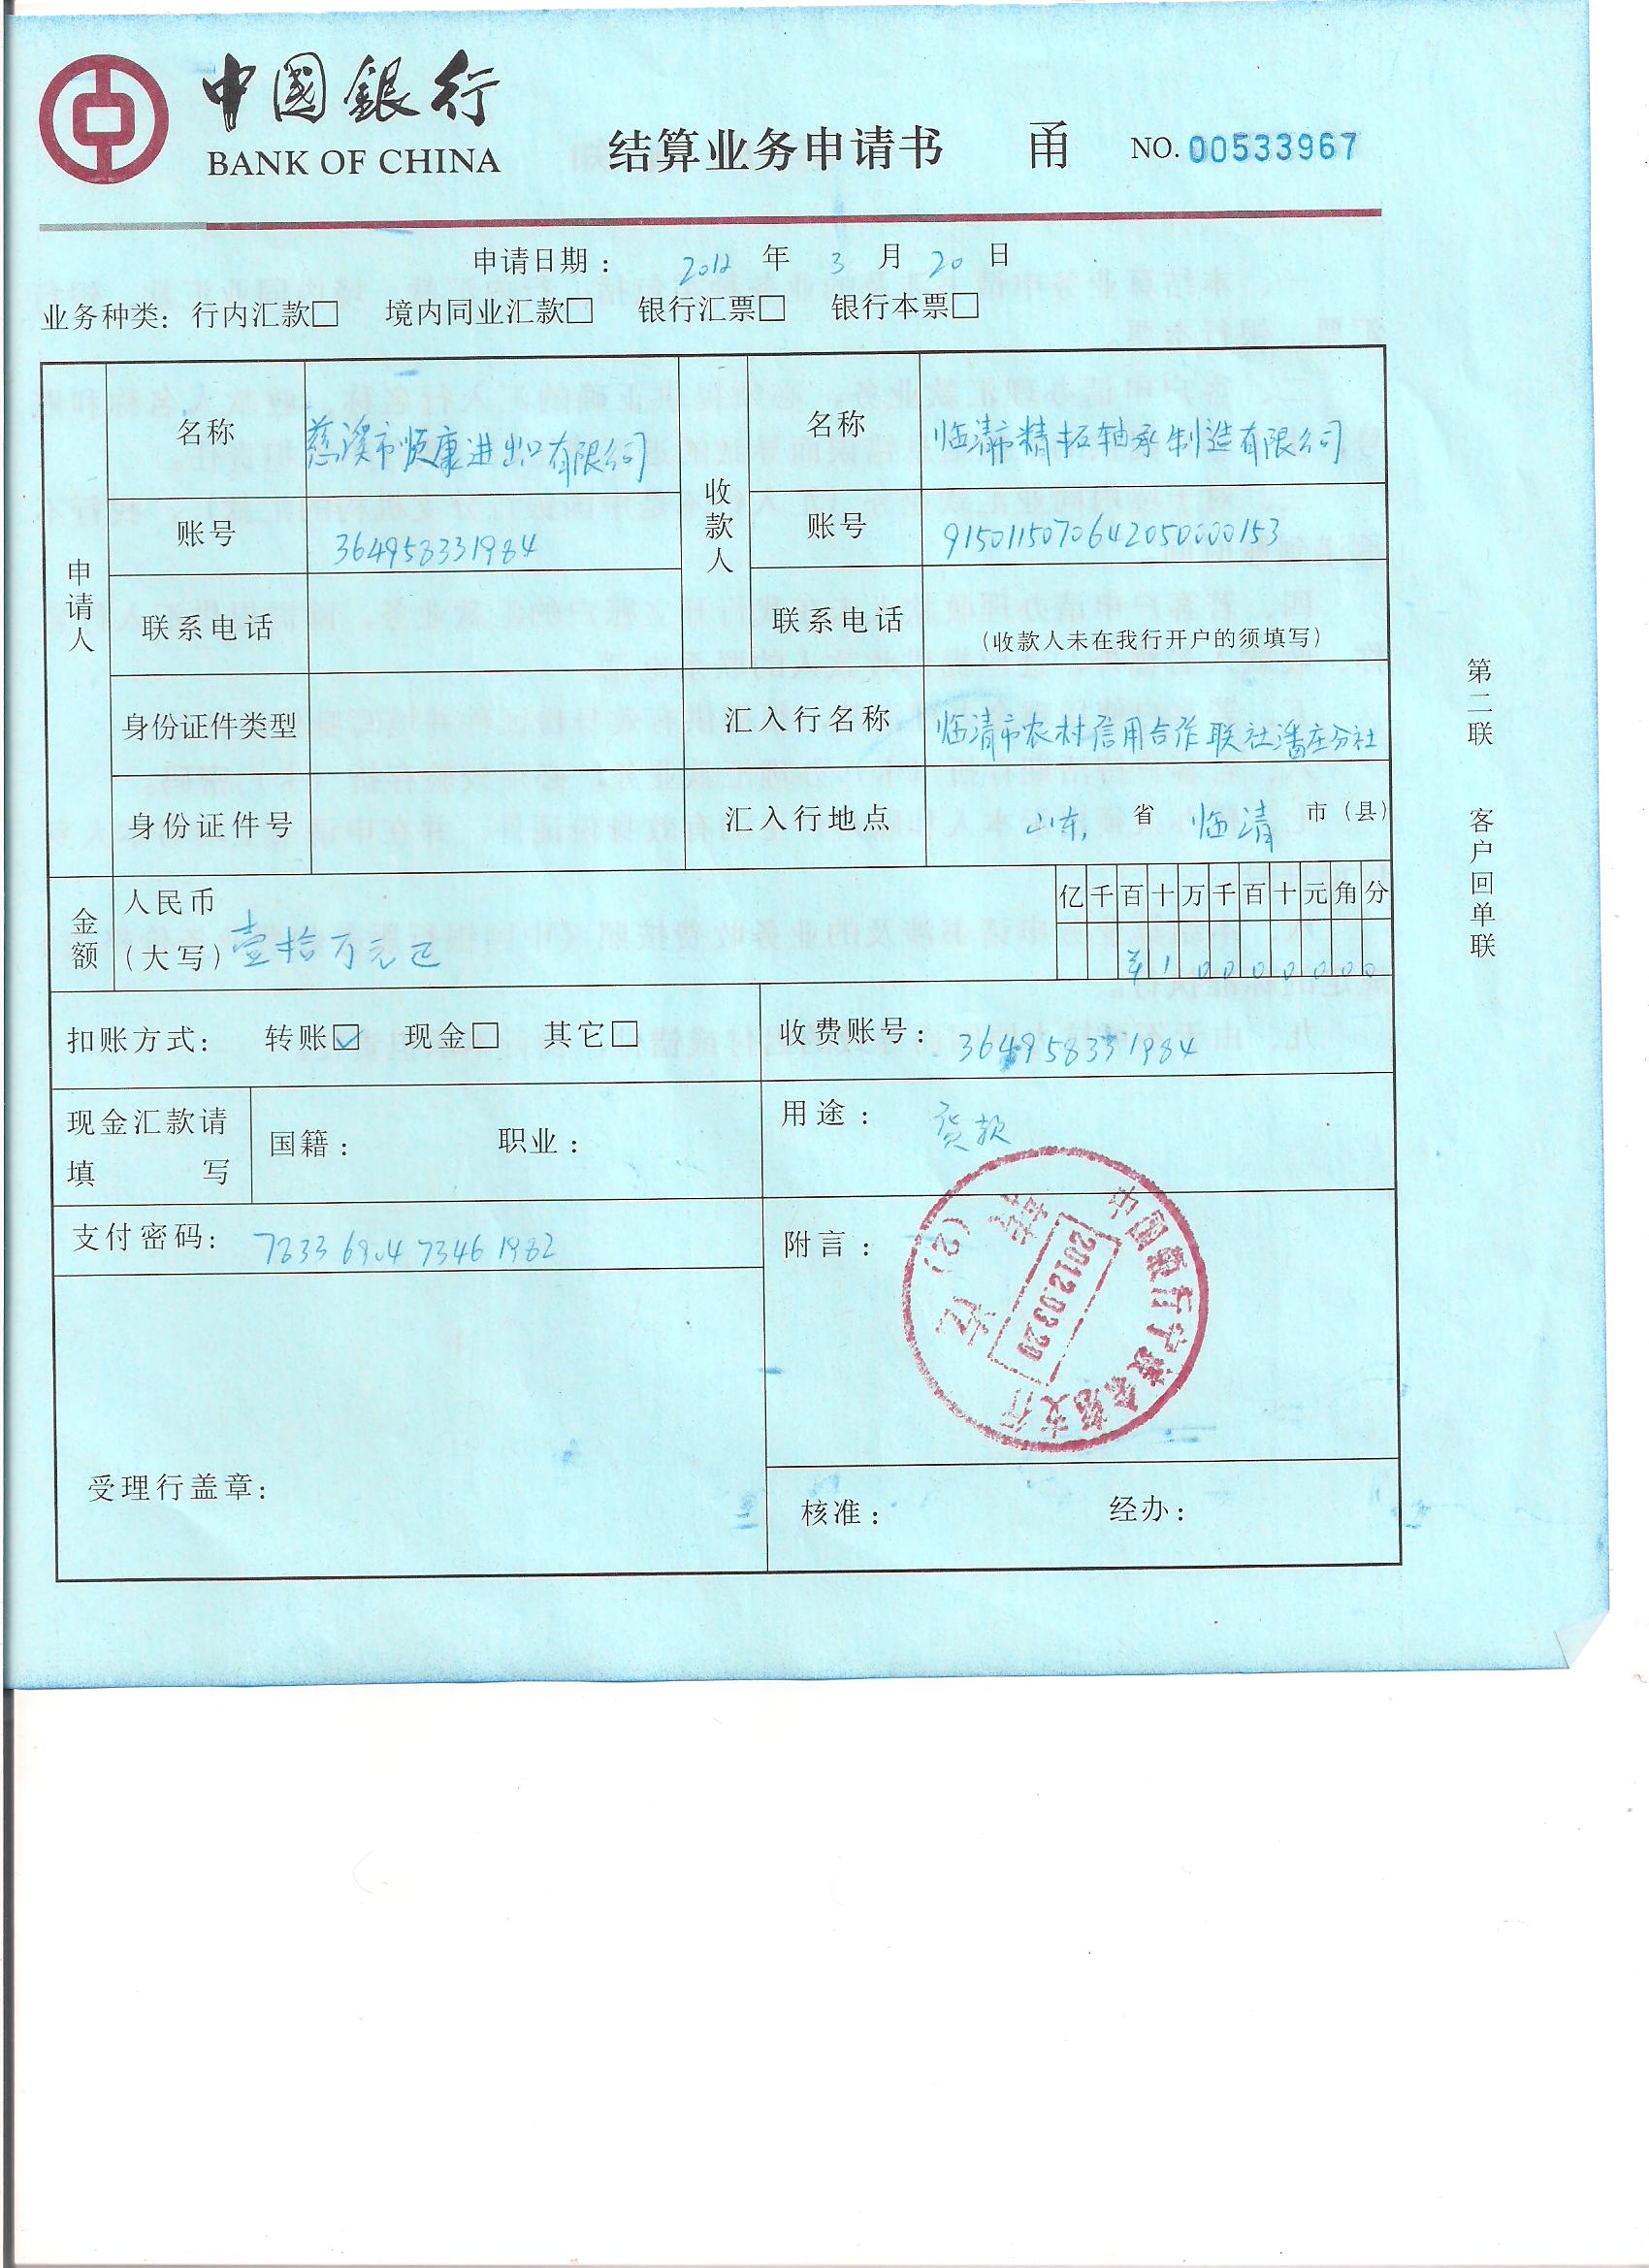 中國銀行
BANK OF CHINA
结算业务申请书 甬 NO. 00533967
申请日期: 2012 年 3 月 20 日
业务种类: 行内汇款□ 境内同业汇款□ 银行汇票□ 银行本票□
申请人
名称 慈溪市顺康进出口有限公司
账号 364958331984
联系电话
身份证件类型
身份证件号
收款人
名称 临清市精拓轴承制造有限公司
账号 9150115070642050000153
联系电话 (收款人未在我行开户的须填写)
汇入行名称 临清市农村信用合作联社潘庄分社
汇入行地点 山东 省 临清 市(县)
金额
人民币
(大写) 壹拾万元正
亿 千 百 十 万 千 百 十 元 角 分
¥ 1 0 0 0 0 0 0 0
扣账方式: 转账☑ 现金□ 其它□
收费账号: 364958331984
现金汇款请
填 写
国籍: 职业:
用途: 货款
支付密码: 7833 6904 7346 1982
附言:
中国银行宁波慈溪支行
2012.03.20
转讫
(2)
受理行盖章:
核准: 经办:
第二联 客户回单联